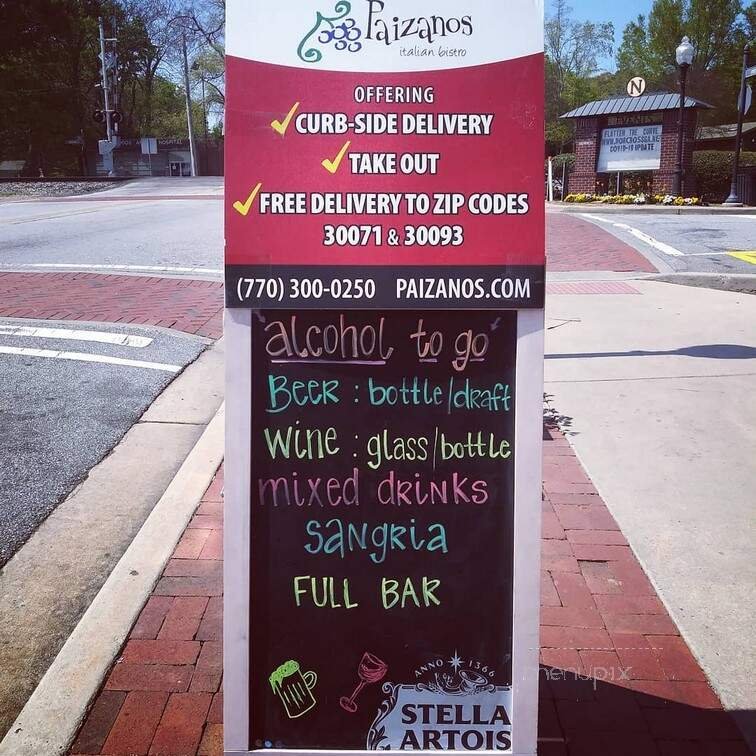 Paizanos
italian bistro
OFFERING
CURB-SIDE DELIVERY
TAKE OUT
FREE DELIVERY TO ZIP CODES
30071 & 30093
(770) 300-0250 PAIZANOS.COM
alcohol to go
BEER : bottle/draft
wine : glass/bottle
mixed drinks
SANGRIA
FULL BAR
ANNO 1366
STELLA
ARTOIS
menupix
N
EVENTS
FLATTEN THE CURVE
COVID-19 UPDATE
HOSPITAL